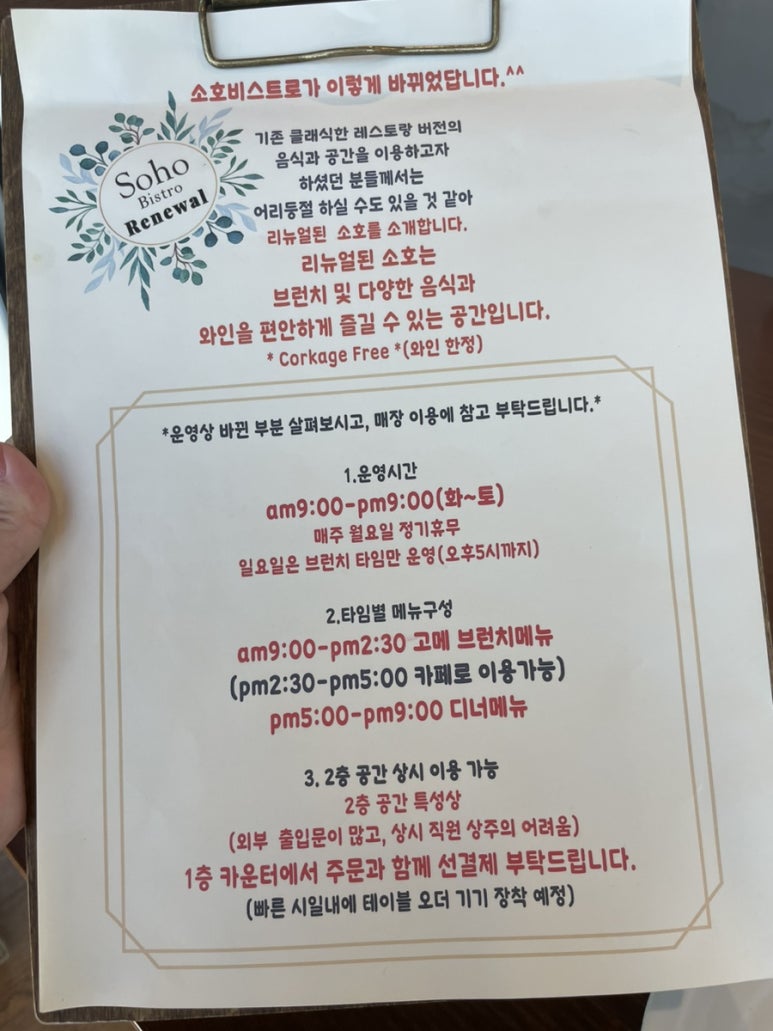 소호비스트로가 이렇게 바뀌었답니다.^^
Soho
Bistro
Renewal
기존 클래식한 레스토랑 버전의
음식과 공간을 이용하고자
하셨던 분들께서는
어리둥절 하실 수도 있을 것 같아
리뉴얼된 소호를 소개합니다.
리뉴얼된 소호는
브런치 및 다양한 음식과
와인을 편안하게 즐길 수 있는 공간입니다.
* Corkage Free *(와인 한정)
*운영상 바뀐 부분 살펴보시고, 매장 이용에 참고 부탁드립니다.*
1.운영시간
am9:00-pm9:00(화~토)
매주 월요일 정기휴무
일요일은 브런치 타임만 운영(오후5시까지)
2.타임별 메뉴구성
am9:00-pm2:30 고메 브런치메뉴
(pm2:30-pm5:00 카페로 이용가능)
pm5:00-pm9:00 디너메뉴
3. 2층 공간 상시 이용 가능
2층 공간 특성상
(외부 출입문이 많고, 상시 직원 상주의 어려움)
1층 카운터에서 주문과 함께 선결제 부탁드립니다.
(빠른 시일내에 테이블 오더 기기 장착 예정)